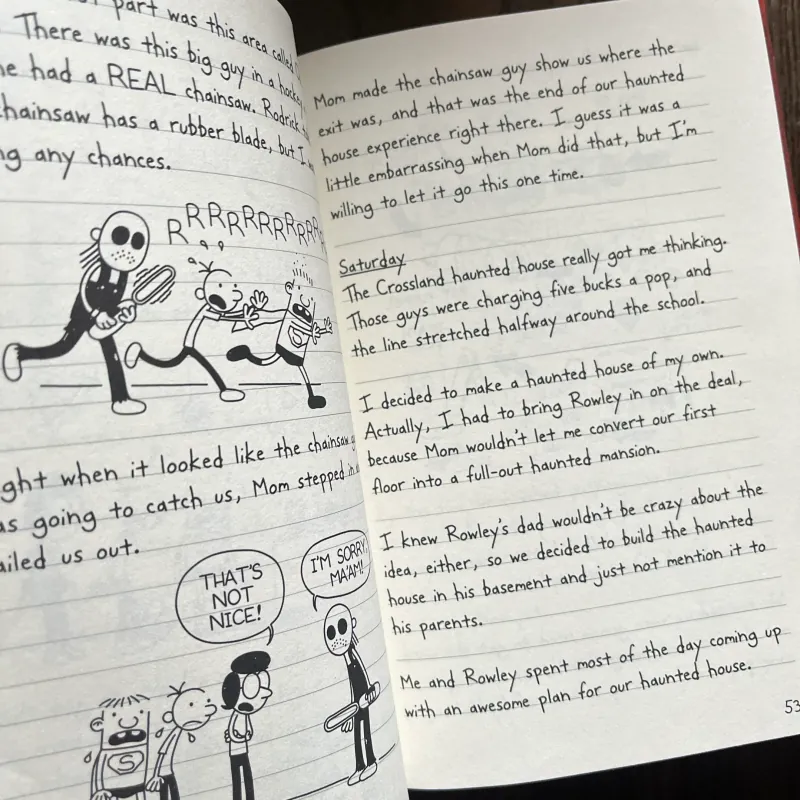 part was this area called
There was this big guy in a hockey
he had a REAL chainsaw. Rodrick
chainsaw has a rubber blade, but I
any chances.
RRRRRRRRRR
when it looked like the chainsaw
going to catch us, Mom stepped in
us out.
THAT'S
NOT
NICE!
I'M SORRY,
MA'AM!
S
Mom made the chainsaw guy show us where the
exit was, and that was the end of our haunted
house experience right there. I guess it was a
little embarrassing when Mom did that, but I'm
willing to let it go this one time.
Saturday
The Crossland haunted house really got me thinking.
Those guys were charging five bucks a pop, and
the line stretched halfway around the school.
I decided to make a haunted house of my own.
Actually, I had to bring Rowley in on the deal,
because Mom wouldn't let me convert our first
floor into a full-out haunted mansion.
I knew Rowley's dad wouldn't be crazy about the
idea, either, so we decided to build the haunted
house in his basement and just not mention it to
his parents.
Me and Rowley spent most of the day coming up
with an awesome plan for our haunted house.
53